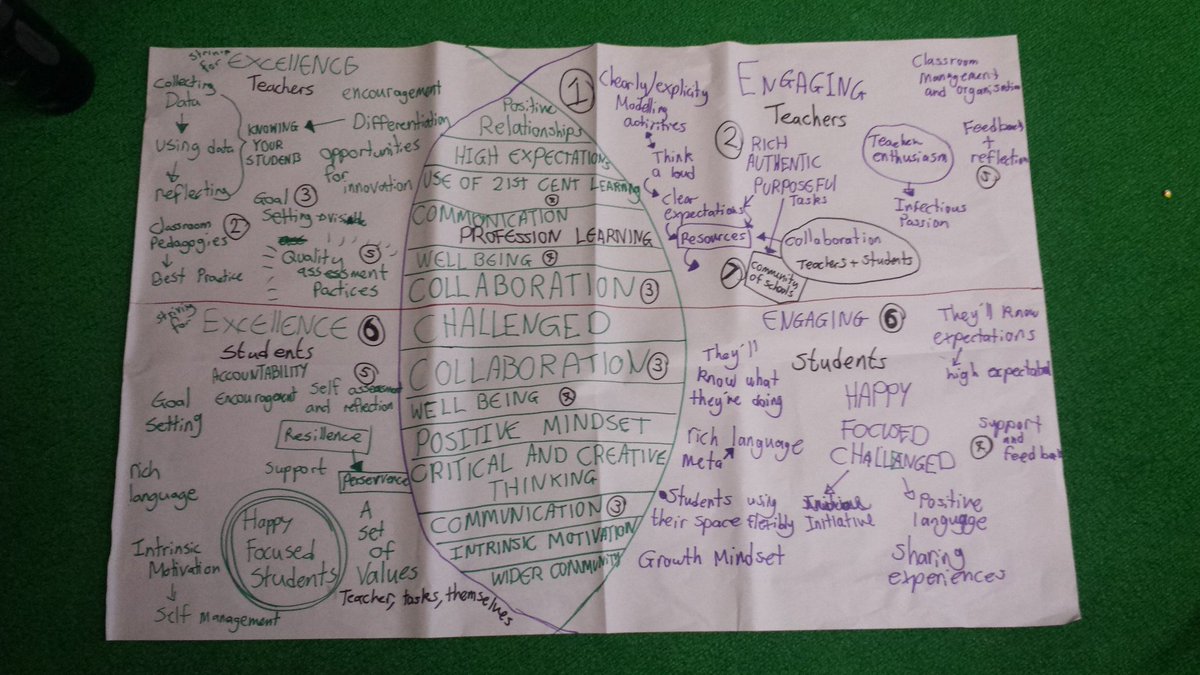 Striving for EXCELLENCE
Teachers
Collecting
Data
Using data
reflecting
KNOWING
YOUR
STUDENTS
encouragement
Differentiation
opportunities
for
innovation
Goal ③
Setting
Classroom ②
Pedagogies
Best Practice
Quality ⑤
assessment
Pactices
①
Positive
Relationships
HIGH EXPECTATIONS
USE OF 21ST CENT LEARNING
COMMUNICATION
PROFESSION LEARNING
WELL BEING
COLLABORATION ③
Clearly/explicity
Modelling
activitres
Think
a loud
clear
expectations
Resources
ENGAGING
Teachers
② RICH
AUTHENTIC
PURPOSEFUL
Tasks
Classroom
Management
and organisation
Teacher
enthusiasm
Infectious
Passion
Feedback
+
reflection
⑤
collaboration
Teachers + Students
⑦ community
of schools
Striving
for EXCELLENCE ⑥
Students
ACCOUNTABILITY
⑤
Goal
Setting
Encouragement
Self assessment
and reflection
Resillence
Support
Perservence
rich
language
Happy
Focused
Students
A
Set
of
Values
Teacher, tasks, themselves
Intrinsic
Motivation
Self Management
CHALLENGED
COLLABORATION ③
WELL BEING
POSITIVE MINDSET
CRITICAL AND CREATIVE
THINKING
COMMUNICATION ③
INTRINSIC MOTIVATION
WIDER COMMUNITY
ENGAGING ⑥
Students
They'll
Know what
they're doing
rich language
Meta
•Students using
their space flexibly
Growth Mindset
HAPPY
FOCUSED
CHALLENGED
Initiative
Positive
language
Sharing
experiences
They'll Know
expectations
high expectations
Support
and
feedback